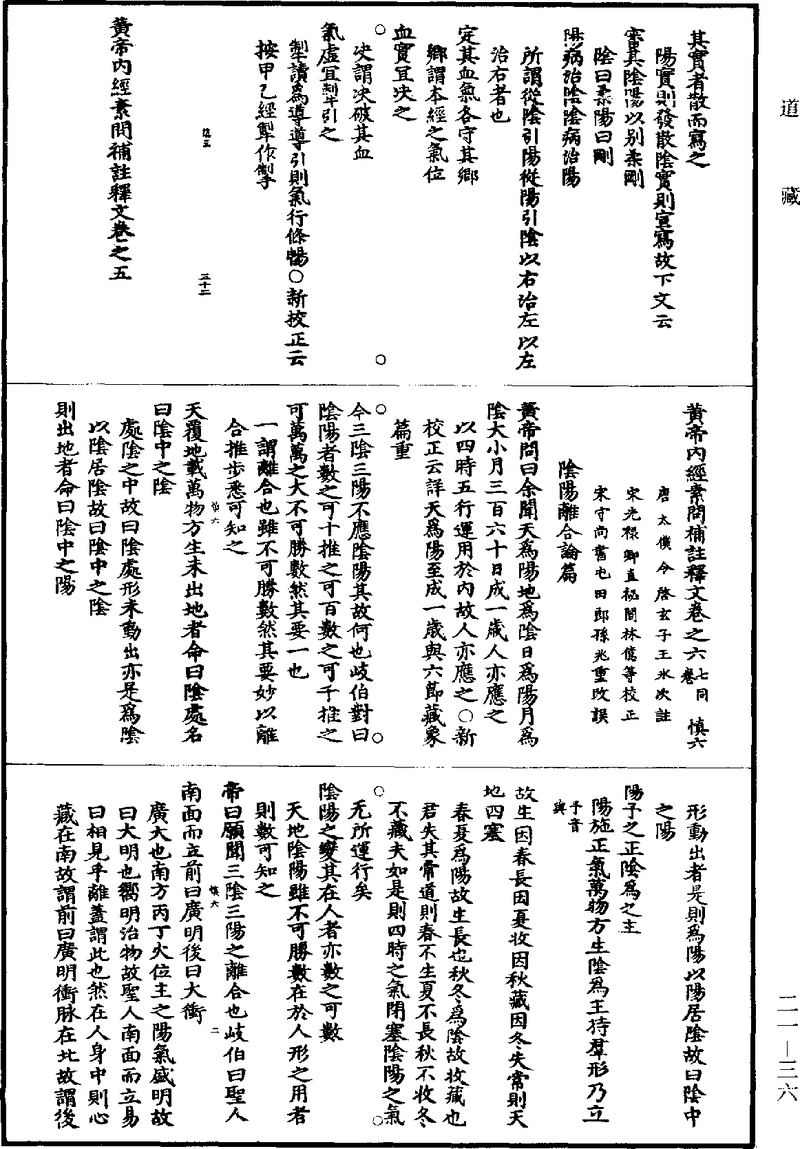 道藏
二一—三六
其實者散而寫之
陽實則發散陰實則宣寫故下文云
審其陰陽以别柔剛
陰曰柔陽曰剛
陽病治陰陰病治陽
所謂從陰引陽從陽引陰以右治左以左
治右者也
定其血氣各守其鄉
鄉謂本經之氣位
血實宜决之
决謂决破其血
氣虛宜掣引之
掣讀爲導導引則氣行條暢○新校正云
按甲乙經掣作㨖
三十二
黃帝内經素問補註釋文卷之五
黃帝内經素問補註釋文卷之六七同卷 慎六
唐太僕令啓玄子王氷次註
宋光祿卿直秘閣林億等校正
宋守尚書屯田郎孫兆重改誤
陰陽離合論篇
黃帝問曰余聞天爲陽地爲陰日爲陽月爲
陰大小月三百六十日成一歲人亦應之
以四時五行運用於内故人亦應之○新
校正云詳天爲陽至成一歲與六節藏象
篇重
今三陰三陽不應陰陽其故何也岐伯對曰
陰陽者數之可十推之可百數之可千推之
可萬萬之大不可勝數然其要一也
一謂離合也雖不可勝數然其要妙以離
合推步悉可知之
天覆地載萬物方生未出地者命曰陰處名
曰陰中之陰
處陰之中故曰陰處形未動出亦是爲陰
以陰居陰故曰陰中之陰
則出地者命曰陰中之陽
形動出者是則爲陽以陽居陰故曰陰中
之陽
陽予之正陰爲之主
陽施正氣萬物方生陰爲主持羣形乃立
予音與
故生因春長因夏收因秋藏因冬失常則天
地四塞
春夏爲陽故生長也秋冬爲陰故收藏也
君失其常道則春不生夏不長秋不收冬
不藏夫如是則四時之氣閉塞陰陽之氣
无所運行矣
陰陽之變其在人者亦數之可數
天地陰陽雖不可勝數在於人形之用者
則數可知之
帝曰願聞三陰三陽之離合也岐伯曰聖人
南面而立前曰廣明後曰大衝
慎六 二
廣大也南方丙丁火位主之陽氣盛明故
曰大明也嚮明治物故聖人南面而立易
曰相見乎離蓋謂此也然在人身中則心
藏在南故謂前曰廣明衝脉在北故謂後